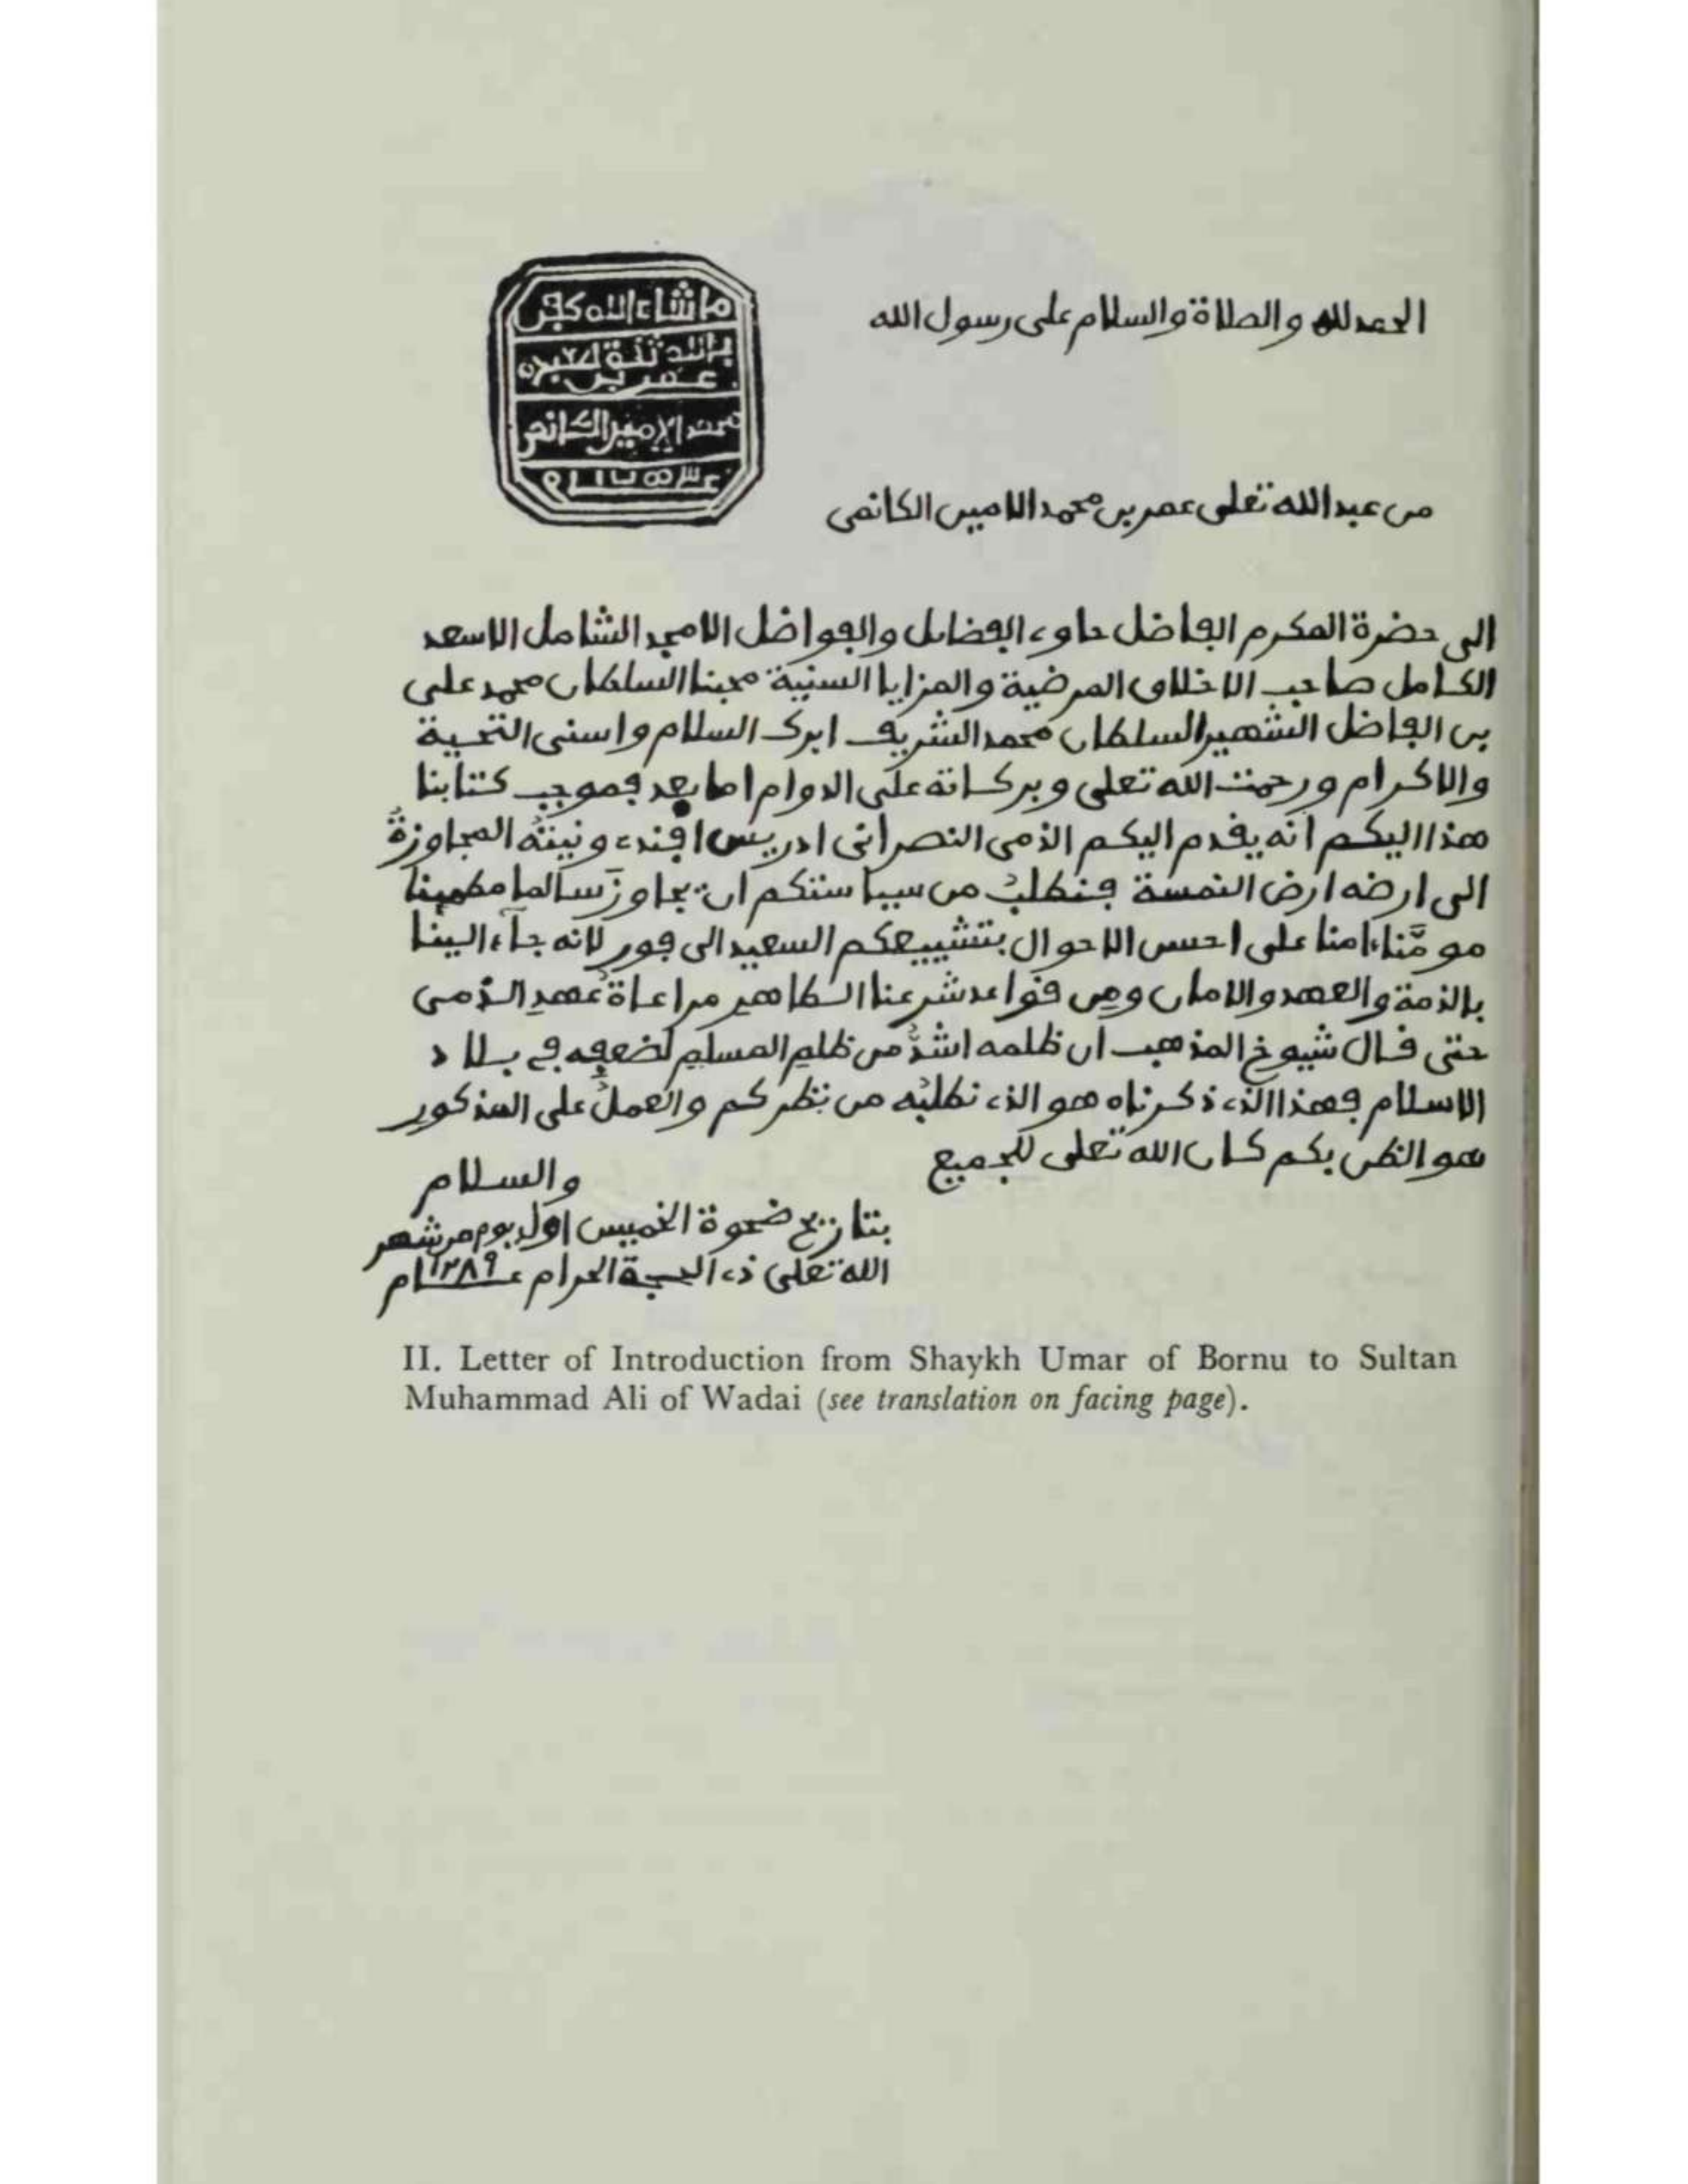 الحمد لله والصلاة والسلام على رسول الله
ما شاء الله كفى
بالله ثقة لعبده
عمر بن
محمد الامين الكانمي
من عبد الله تعلى عمر بن محمد الامين الكانمي
الى حضرة المكرم الفاضل حاوي الفضايل والفواضل الامجد الشامل الاسعد
الكامل صاحب الاخلاق المرضية والمزايا السنية محبنا السلطان محمد على
بن الفاضل الشهير السلطان محمد الشريف ابرك السلام واسنى التحية
والاكرام ورحمت الله تعلى وبركاته على الدوام اما بعد فموجب كتابنا
هذا اليكم انه يقدم اليكم الذمى النصرانى ادريس افندي ونيتُه المجاوزةُ
الى ارضه ارض النمسة فنطلب من سياستكم ان يجاوز سالما مطمينا
مومَّنا ءامنا على احسن الاحوال بتشييعكم السعيد الى فور لانه جاء الينا
بالذمة والعهد والامان ومِن قواعد شرعنا الطاهر مراعاةُ عهدِ الذمى
حتى قال شيوخ المذهب ان ظلمه اشدُّ من ظلمِ المسلمِ لضعفِه في بلاد
الاسلام فهذا الذي ذكرناه هو الذي نطلبُه من نظركم والعملُ على المذكور
هو الظن بكم كان الله تعلى للجميع
والسلام
بتاريخ ضحوة الخميس اول يوم من شهر
الله تعلى ذي الحجة الحرام عــام ١٢٨٩
II. Letter of Introduction from Shaykh Umar of Bornu to Sultan
Muhammad Ali of Wadai (see translation on facing page).